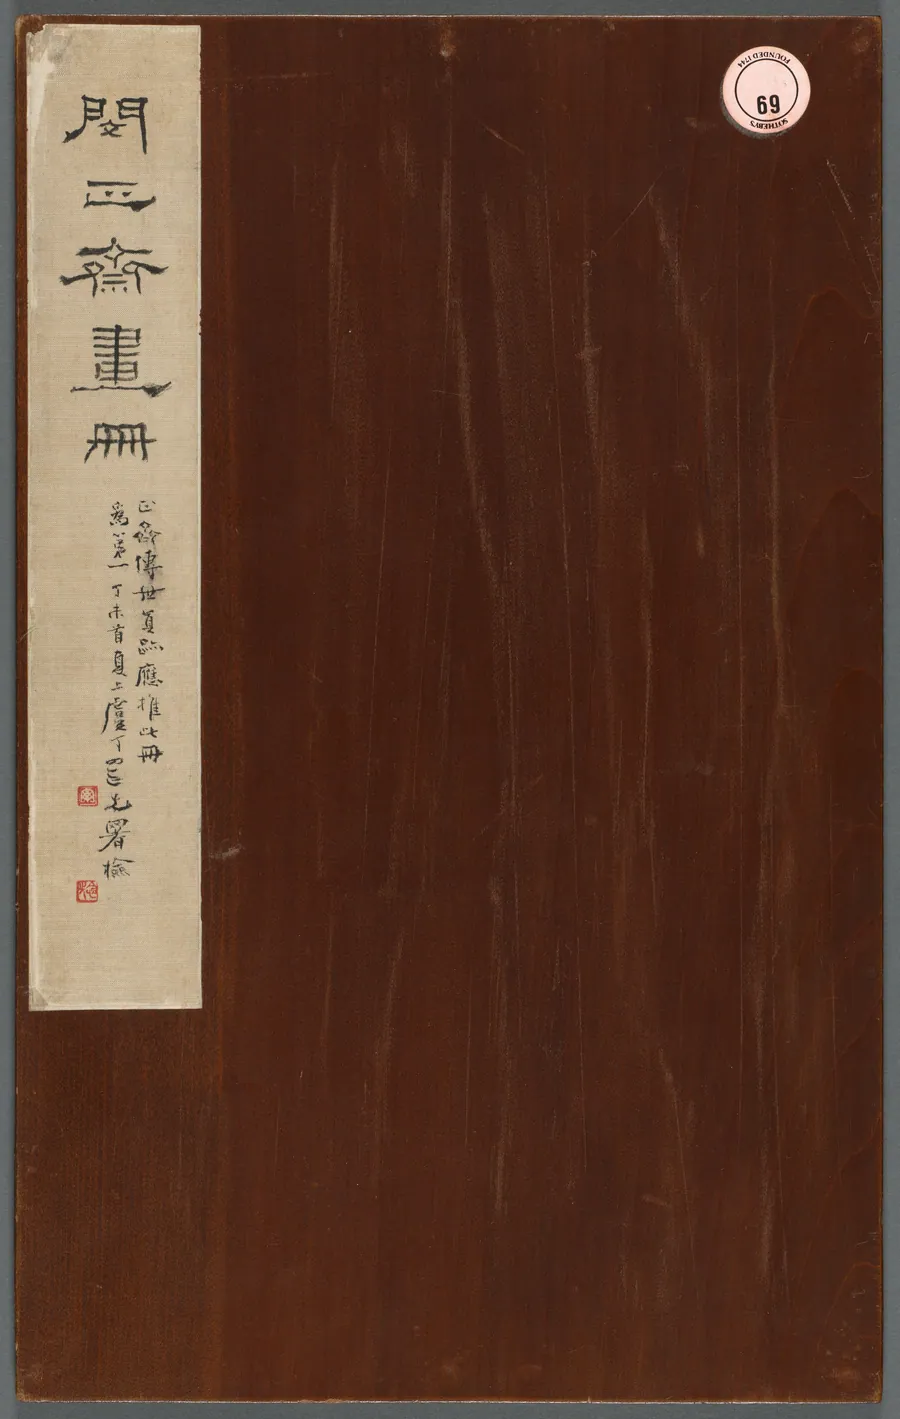 閔正齋畫冊
正齋傳世真跡應推此冊
為第一 丁未首夏上虞丁羲元署檢
SOTHEBY'S
69
FOUNDED 1744